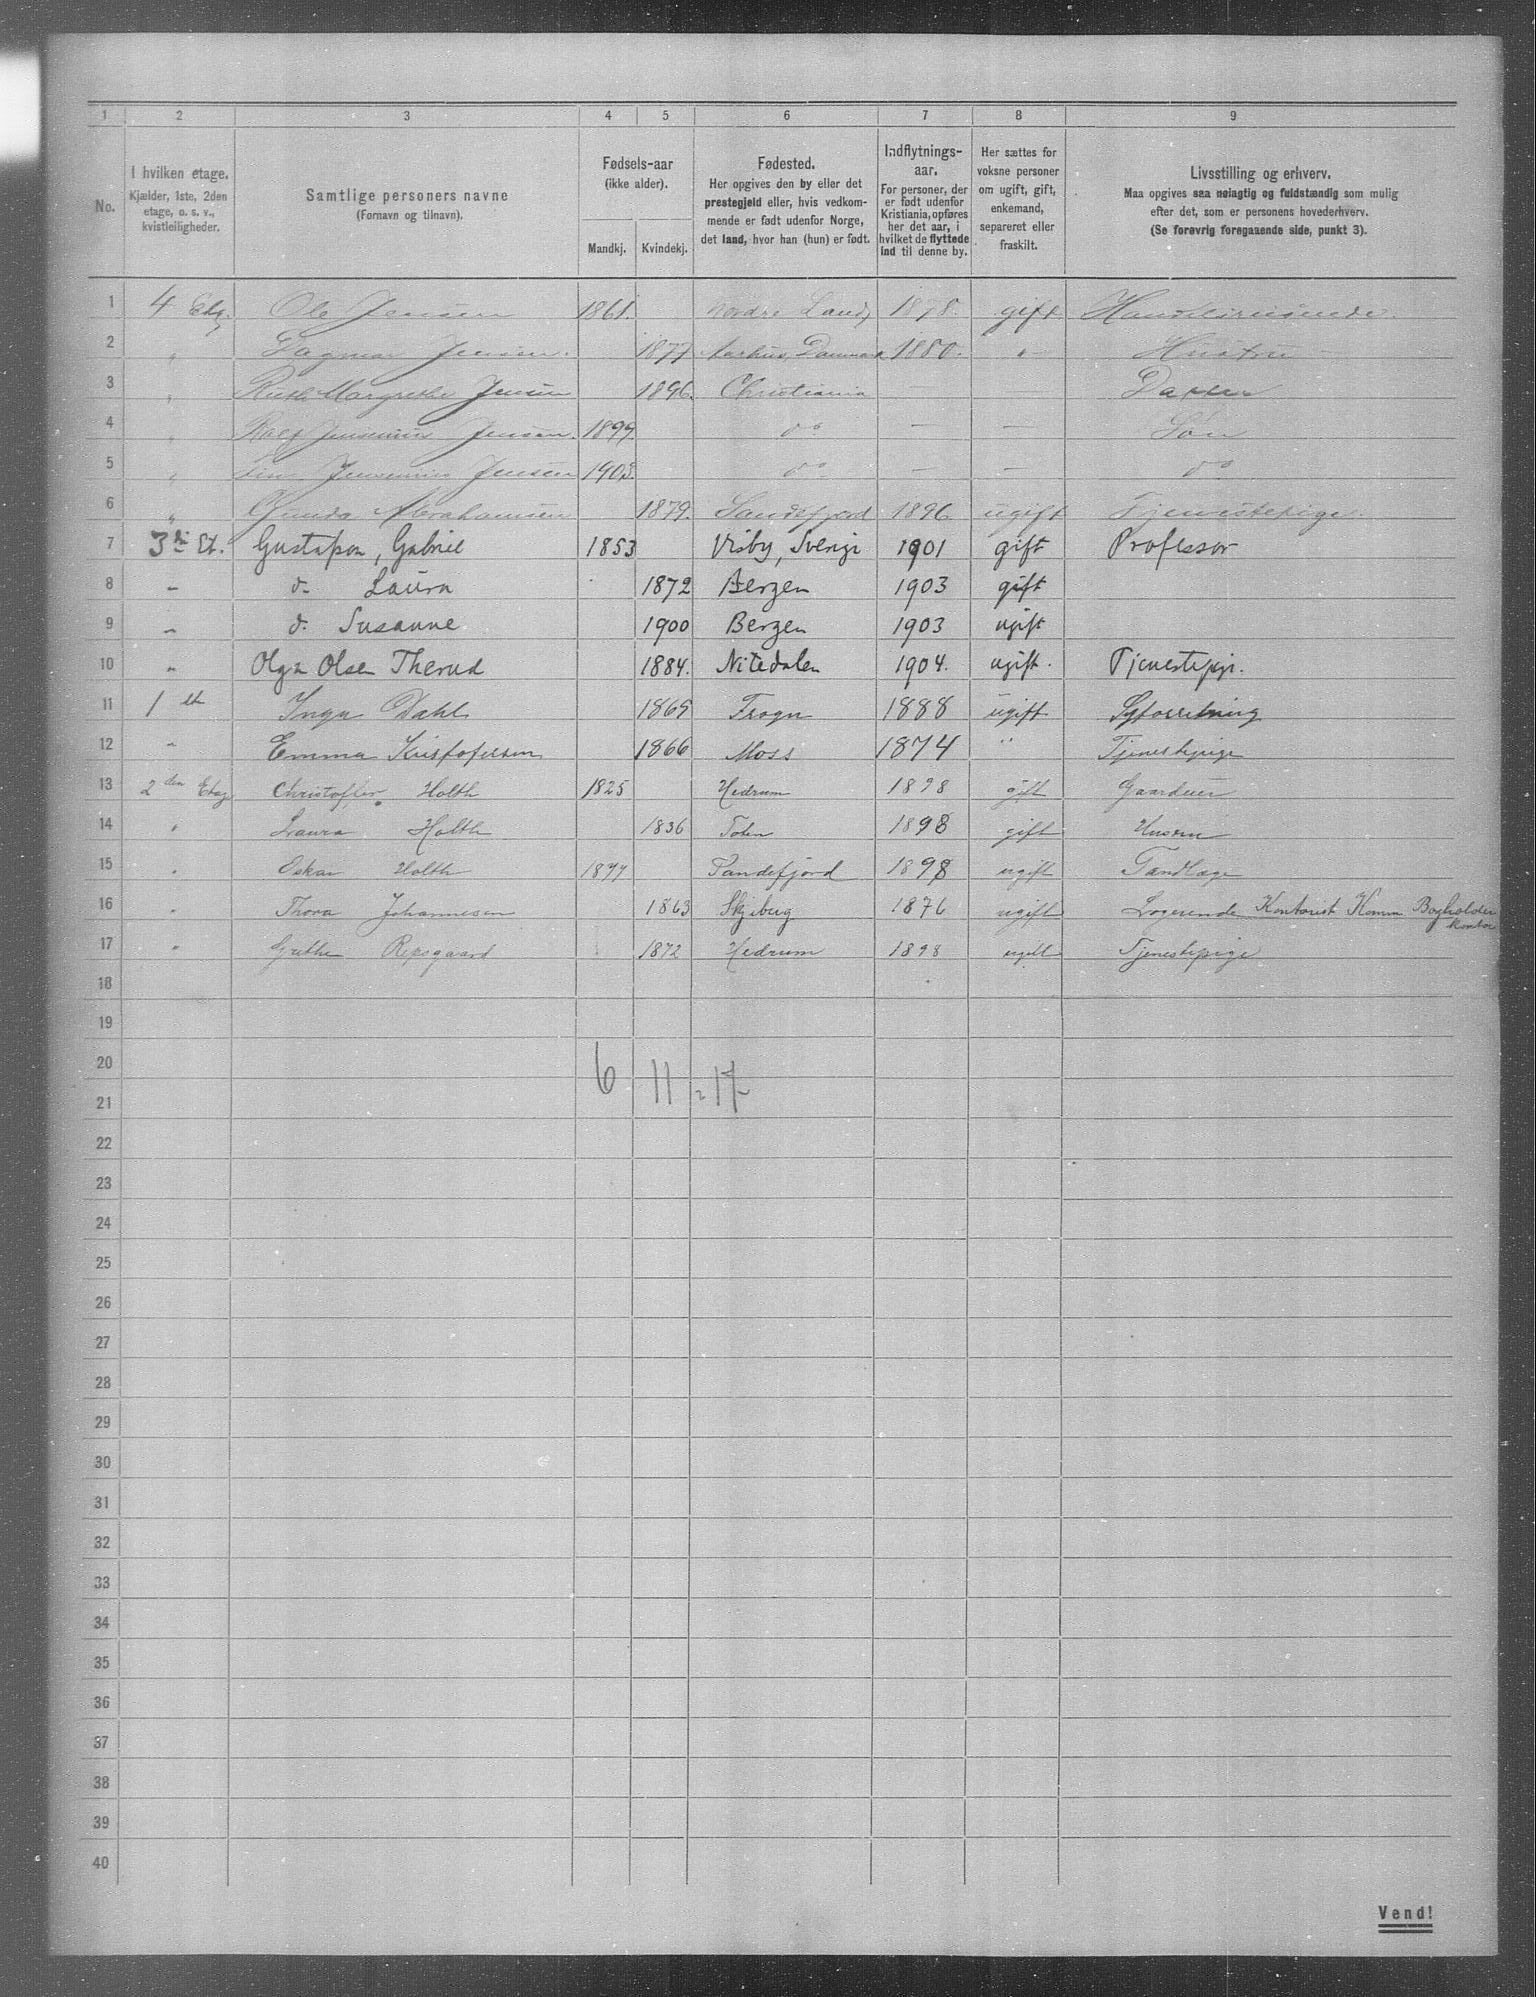 1 2 3 4 5 6 7 8 9
No.
I hvilken etage.
Kjælder, 1ste, 2den
etage, o. s. v.,
kvistleiligheder.
Samtlige personers navne
(Fornavn og tilnavn).
Fødsels-aar
(ikke alder).
Mandkj. Kvindekj.
Fødested.
Her opgives den by eller det
prestegjeld eller, hvis vedkom-
mende er født udenfor Norge,
det land, hvor han (hun) er født.
Indflytnings-
aar.
For personer, der
er født udenfor
Kristiania, opføres
her det aar, i
hvilket de flyttede
ind til denne by.
Her sættes for
voksne personer
om ugift, gift,
enkemand,
separeret eller
fraskilt.
Livsstilling og erhverv.
Maa opgives saa nøiagtig og fuldstændig som mulig
efter det, som er personens hovederhverv.
(Se forøvrig foregaaende side, punkt 3).
1 4 Etg. Ole Jensen 1861. Nordre Land, 1878. gift Handelsreisende.
2 " Dagmar Jensen. 1877 Aarhus, Danmark 1880. " Hustru
3 " Ruth Margrethe Jensen 1896. Christiania — — Datter
4 " Jensen. 1899 do — — Søn
5 " Jensen 1903. do — — do
6 " Gunda Abrahamsen 1879. Sandefjord 1896 ugift Tjenestepige.
7 3die Et. Gustafson, Gabriel 1853 Visby, Sverige 1901 gift Professor
8 — do Laura 1872 Bergen 1903 gift
9 — do Susanne 1900 Bergen 1903 ugift
10 — Olga Olsen Therud 1884. Nitedalen 1904. ugift. Tjenestepige.
11 1 ste Inga Dahl 1865 Frogn 1888 ugift Syforretning
12 — Emma Kristofersen 1866 Moss 1874 " Tjenestepige
13 2 den Etag Christoffer Holth 1825 Hedrum 1898 gift Gaardeier
14 " Laura Holth 1836 Toten 1898 gift Husfru
15 " Oskar Holth 1877 Sandefjord 1898 ugift Tandlæge
16 " Thora Johannesen 1863 Skjeberg 1876 ugift Logerende Kontorist Komm Bogholder
kontor
17 " Grethe Repsgaard 1872 Hedrum 1898 ugift Tjenestepige
18
19
20
6 11 = 17
21
22
23
24
25
26
27
28
29
30
31
32
33
34
35
36
37
38
39
40
Vend!